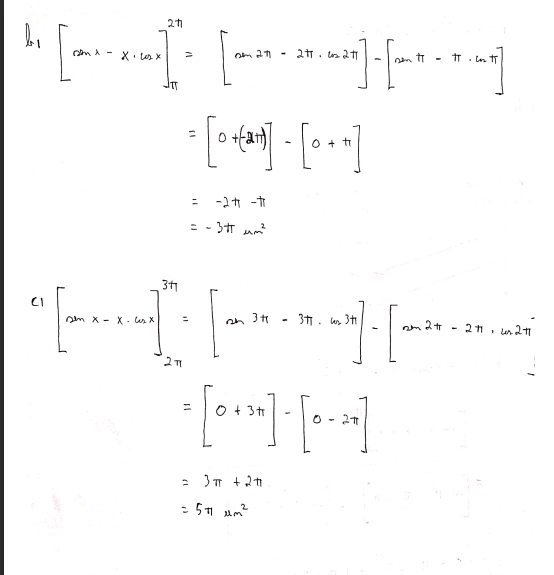 b) [sen x - x . cos x]_π^2π = [sen 2π - 2π . cos 2π] - [sen π - π . cos π]
= [0 + (-2π)] - [0 + π]
= -2π - π
= -3π um²
c) [sen x - x . cos x]_2π^3π = [sen 3π - 3π . cos 3π] - [sen 2π - 2π . cos 2π
= [0 + 3π] - [0 - 2π]
= 3π + 2π
= 5π um²